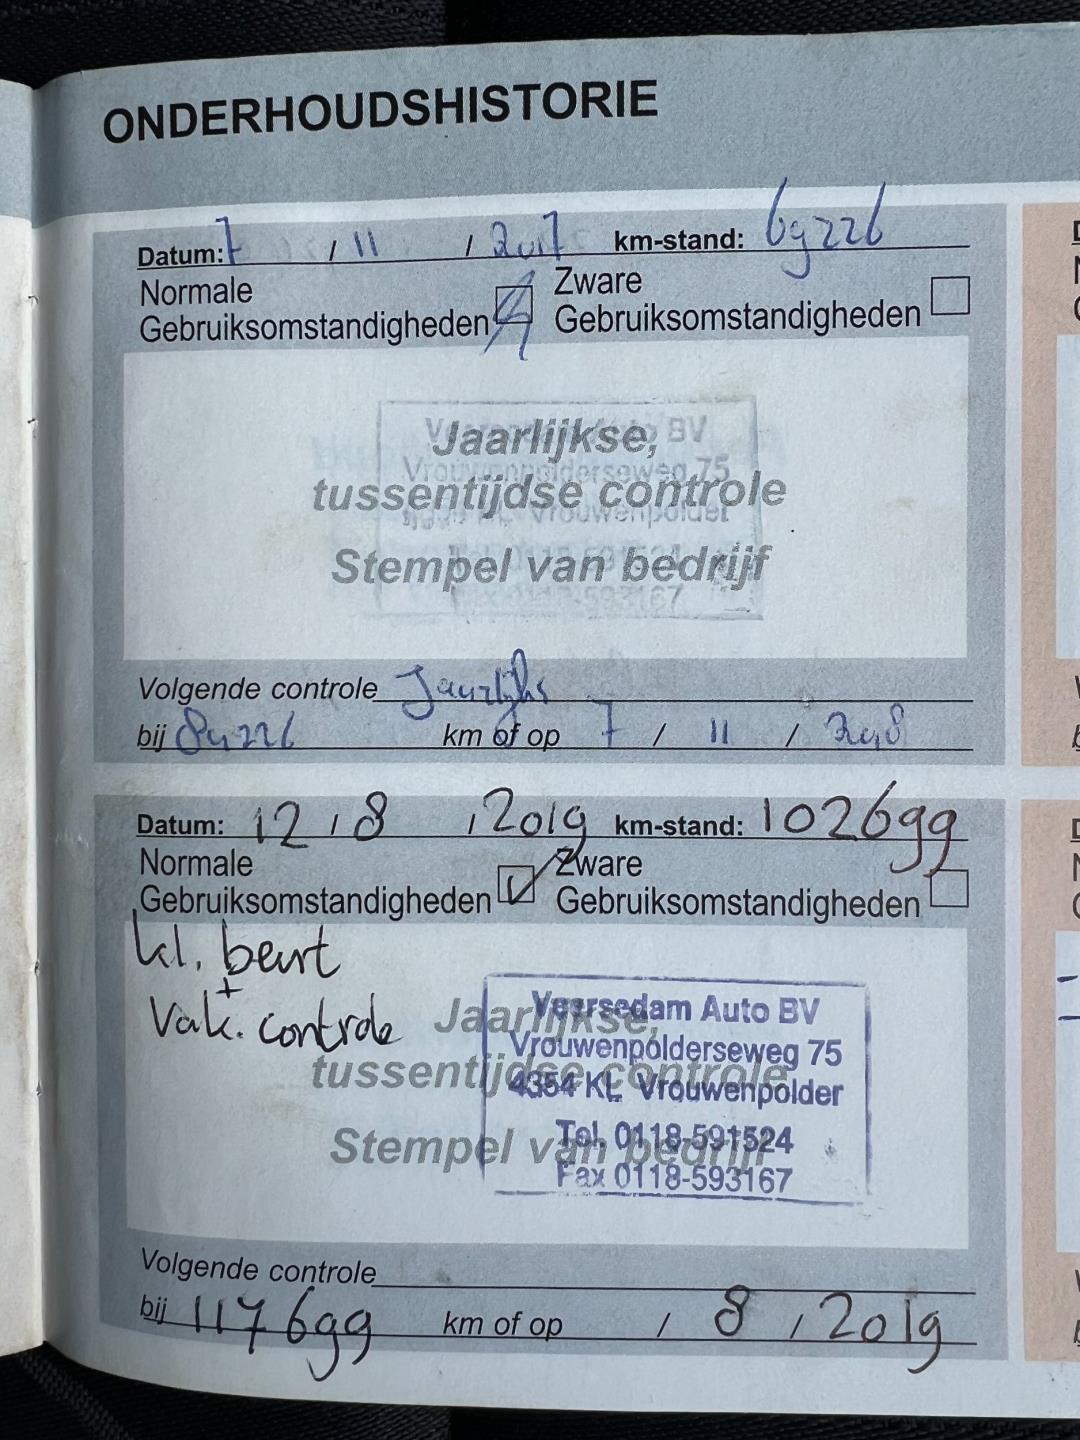 ONDERHOUDSHISTORIE
Datum: 7 / 11 / 2017 km-stand: 69226
Normale Gebruiksomstandigheden
Zware Gebruiksomstandigheden
Jaarlijkse,
tussentijdse controle
Stempel van bedrijf
Auto BV
Vrouwenpolderseweg 75
Vrouwenpolder
593167
Volgende controle Jaarlijks
bij 84226 km of op 7 / 11 / 2018
Datum: 12 / 8 / 2019 km-stand: 102699
Normale Gebruiksomstandigheden
Zware Gebruiksomstandigheden
kl. beurt
+
Vak. controle
Jaarlijkse,
tussentijdse controle
Stempel van bedrijf
Veersedam Auto BV
Vrouwenpolderseweg 75
4354 KL Vrouwenpolder
Tel. 0118-591524
Fax 0118-593167
Volgende controle
bij 117699 km of op / 8 / 2019